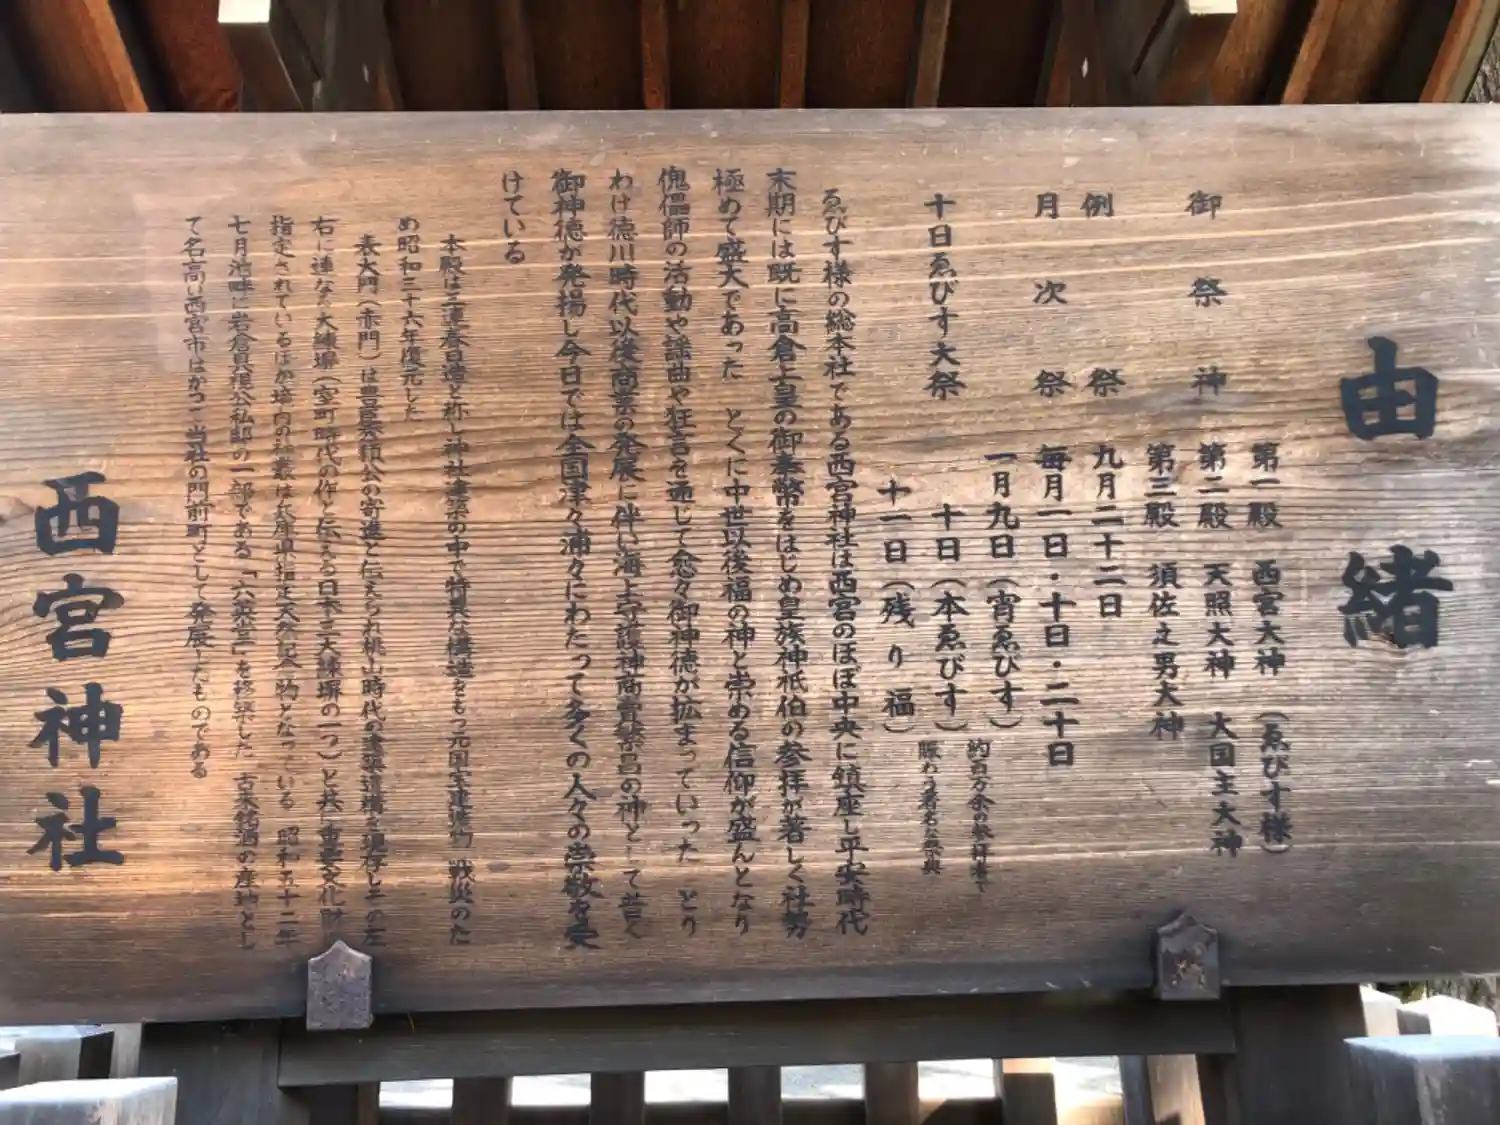 由緒
御祭神
第一殿 西宮大神(ゑびす様)
第二殿 天照大神 大国主大神
第三殿 須佐之男大神
例祭 九月二十二日
月次祭 毎月一日・十日・二十日
十日ゑびす大祭
一月九日(宵ゑびす)
十日(本ゑびす)
十一日(残り福)
約百万余の参拝者で
賑わう著名な祭典
ゑびす様の総本社である西宮神社は西宮のほぼ中央に鎮座し平安時代
末期には既に高倉上皇の御奉幣をはじめ皇族神祇伯の参拝が著しく社勢
極めて盛大であった とくに中世以後福の神と崇める信仰が盛んとなり
傀儡師の活動や謡曲や狂言を通じて愈々御神徳が拡まっていった とり
わけ徳川時代以後商業の発展に伴い海上守護神商売繁昌の神として普く
御神徳が発揚し今日では全国津々浦々にわたって多くの人々の崇敬を受
けている
本殿は三連春日造と称し神社建築の中で特異な構造をもつ元国宝建造物 戦災のた
め昭和三十六年復元した
表大門(赤門)は豊臣秀頼公の寄進と伝えられ桃山時代の建築遺構を現存しその左
右に連なる大練塀(室町時代の作と伝える日本三大練塀の一つ)と共に重要文化財に
指定されているほか境内の社叢は兵庫県指定天然記念物となっている 昭和五十二年
七月池畔に岩倉具視公私邸の一部である「六英堂」を移築した 古来銘酒の産地とし
て名高い西宮市はかつて当社の門前町として発展したものである
西宮神社